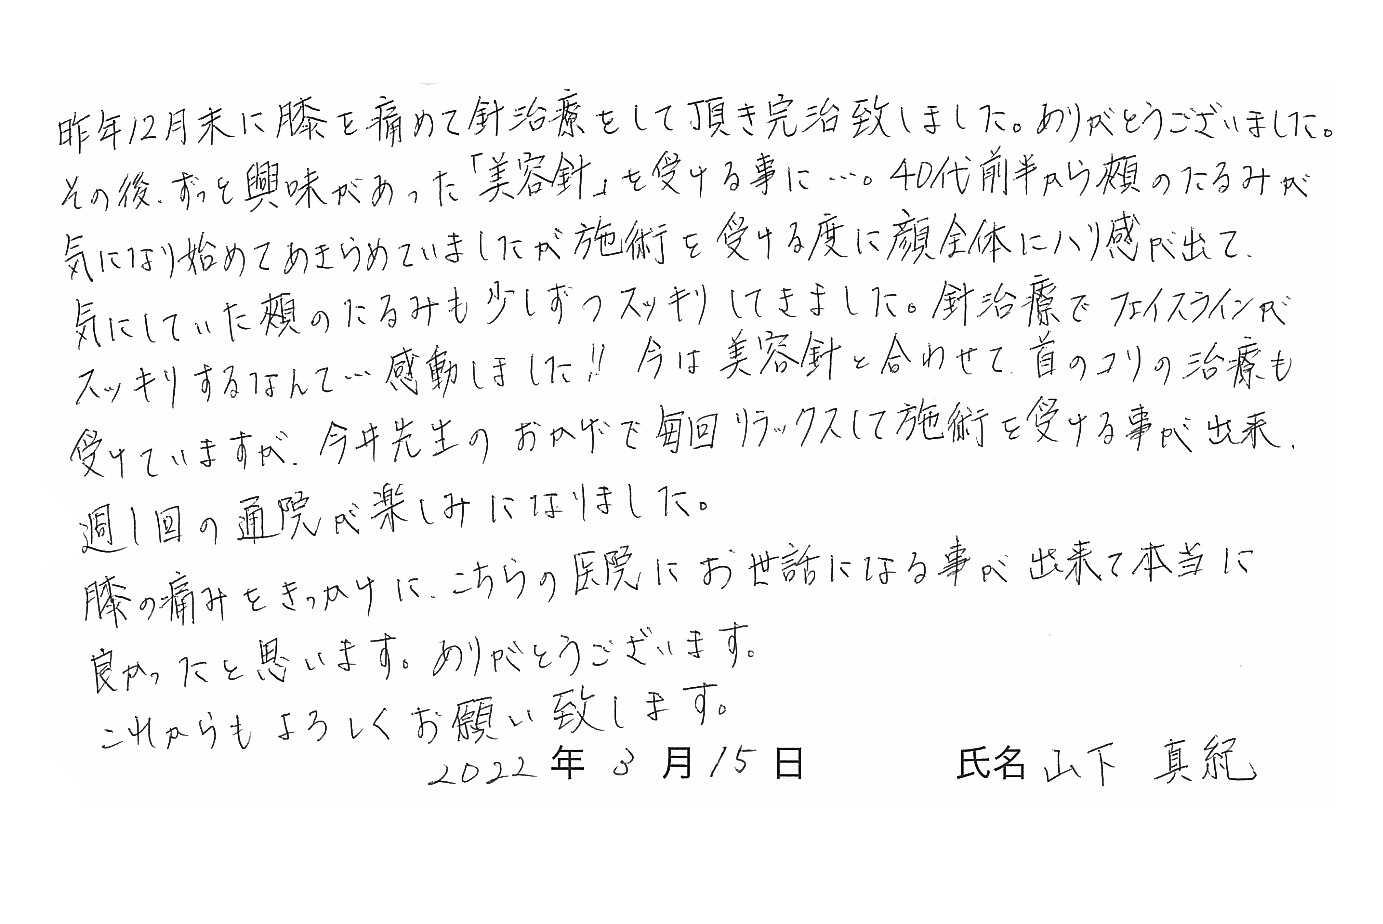 昨年12月末に膝を痛めて針治療をして頂き完治致しました。ありがとうございました。
その後、ずっと興味があった「美容針」を受ける事に…。40代前半から頬のたるみが
気になり始めてあきらめていましたが施術を受ける度に顔全体にハリ感が出て、
気にしていた頬のたるみも少しずつスッキリしてきました。針治療でフェイスラインが
スッキリするなんて…感動しました!! 今は美容針と合わせて、首のコリの治療も
受けていますが、今井先生のおかげで毎回リラックスして施術を受ける事が出来、
週1回の通院が楽しみになりました。
膝の痛みをきっかけに、こちらの医院にお世話になる事が出来て本当に
良かったと思います。ありがとうございます。
これからもよろしくお願い致します。
2022年3月15日 氏名 山下 真紀